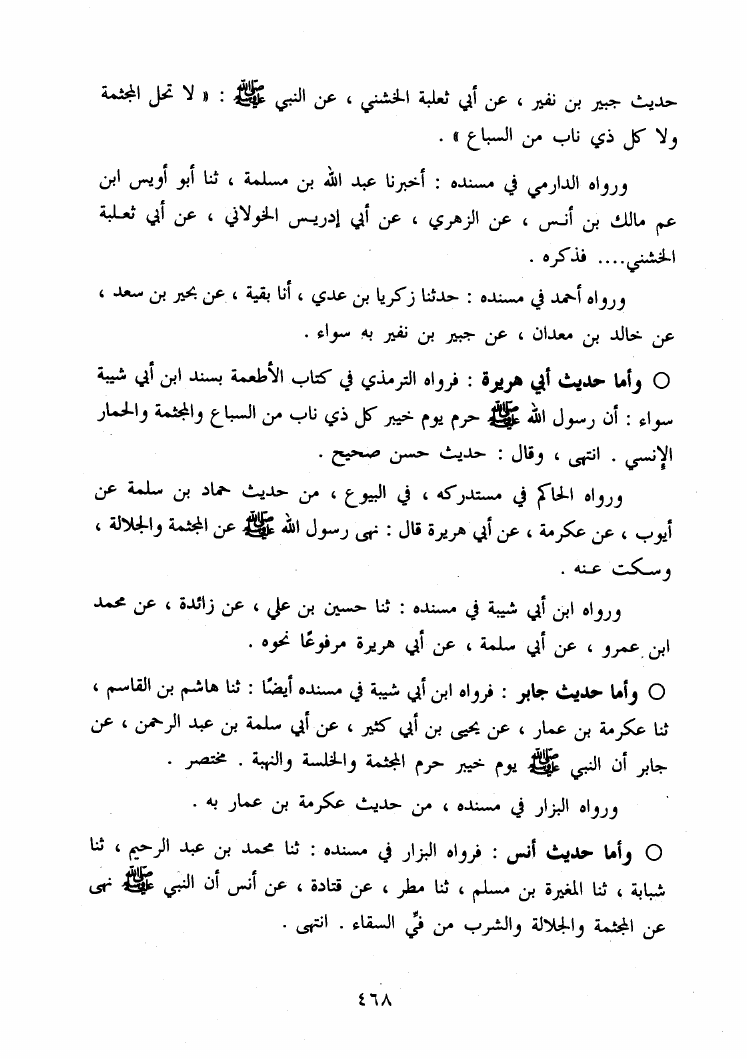 حديث جبير بن نفير ، عن أبي ثعلبة الخشني ، عن النبي ﷺ : « لا تحل المجثمة
ولا كل ذي ناب من السباع » .
ورواه الدارمي في مسنده : أخبرنا عبد الله بن مسلمة ، ثنا أبو أويس ابن
عم مالك بن أنس ، عن الزهري ، عن أبي إدريس الخولاني ، عن أبي ثعلبة
الخشني.... فذكره .
ورواه أحمد في مسنده : حدثنا زكريا بن عدي ، أنا بقية ، عن بحير بن سعد ،
عن خالد بن معدان ، عن جبير بن نفير به سواء .
○ وأما حديث أبي هريرة : فرواه الترمذي في كتاب الأطعمة بسند ابن أبي شيبة
سواء : أن رسول الله ﷺ حرم يوم خيبر كل ذي ناب من السباع والمجثمة والحمار
الإنسي . انتهى ، وقال : حديث حسن صحيح .
ورواه الحاكم في مستدركه ، في البيوع ، من حديث حماد بن سلمة عن
أيوب ، عن عكرمة ، عن أبي هريرة قال : نهى رسول الله ﷺ عن المجثمة والجلالة ،
وسكت عنه .
ورواه ابن أبي شيبة في مسنده : ثنا حسين بن علي ، عن زائدة ، عن محمد
ابن عمرو ، عن أبي سلمة ، عن أبي هريرة مرفوعًا نحوه .
○ وأما حديث جابر : فرواه ابن أبي شيبة في مسنده أيضًا : ثنا هاشم بن القاسم ،
ثنا عكرمة بن عمار ، عن يحيى بن أبي كثير ، عن أبي سلمة بن عبد الرحمن ، عن
جابر أن النبي ﷺ يوم خيبر حرم المجثمة والخلسة والنهبة . مختصر .
ورواه البزار في مسنده ، من حديث عكرمة بن عمار به .
○ وأما حديث أنس : فرواه البزار في مسنده : ثنا محمد بن عبد الرحيم ، ثنا
شبابة ، ثنا المغيرة بن مسلم ، ثنا مطر ، عن قتادة ، عن أنس أن النبي ﷺ نهى
عن المجثمة والجلالة والشرب من فيِّ السقاء . انتهى .
٤٦٨